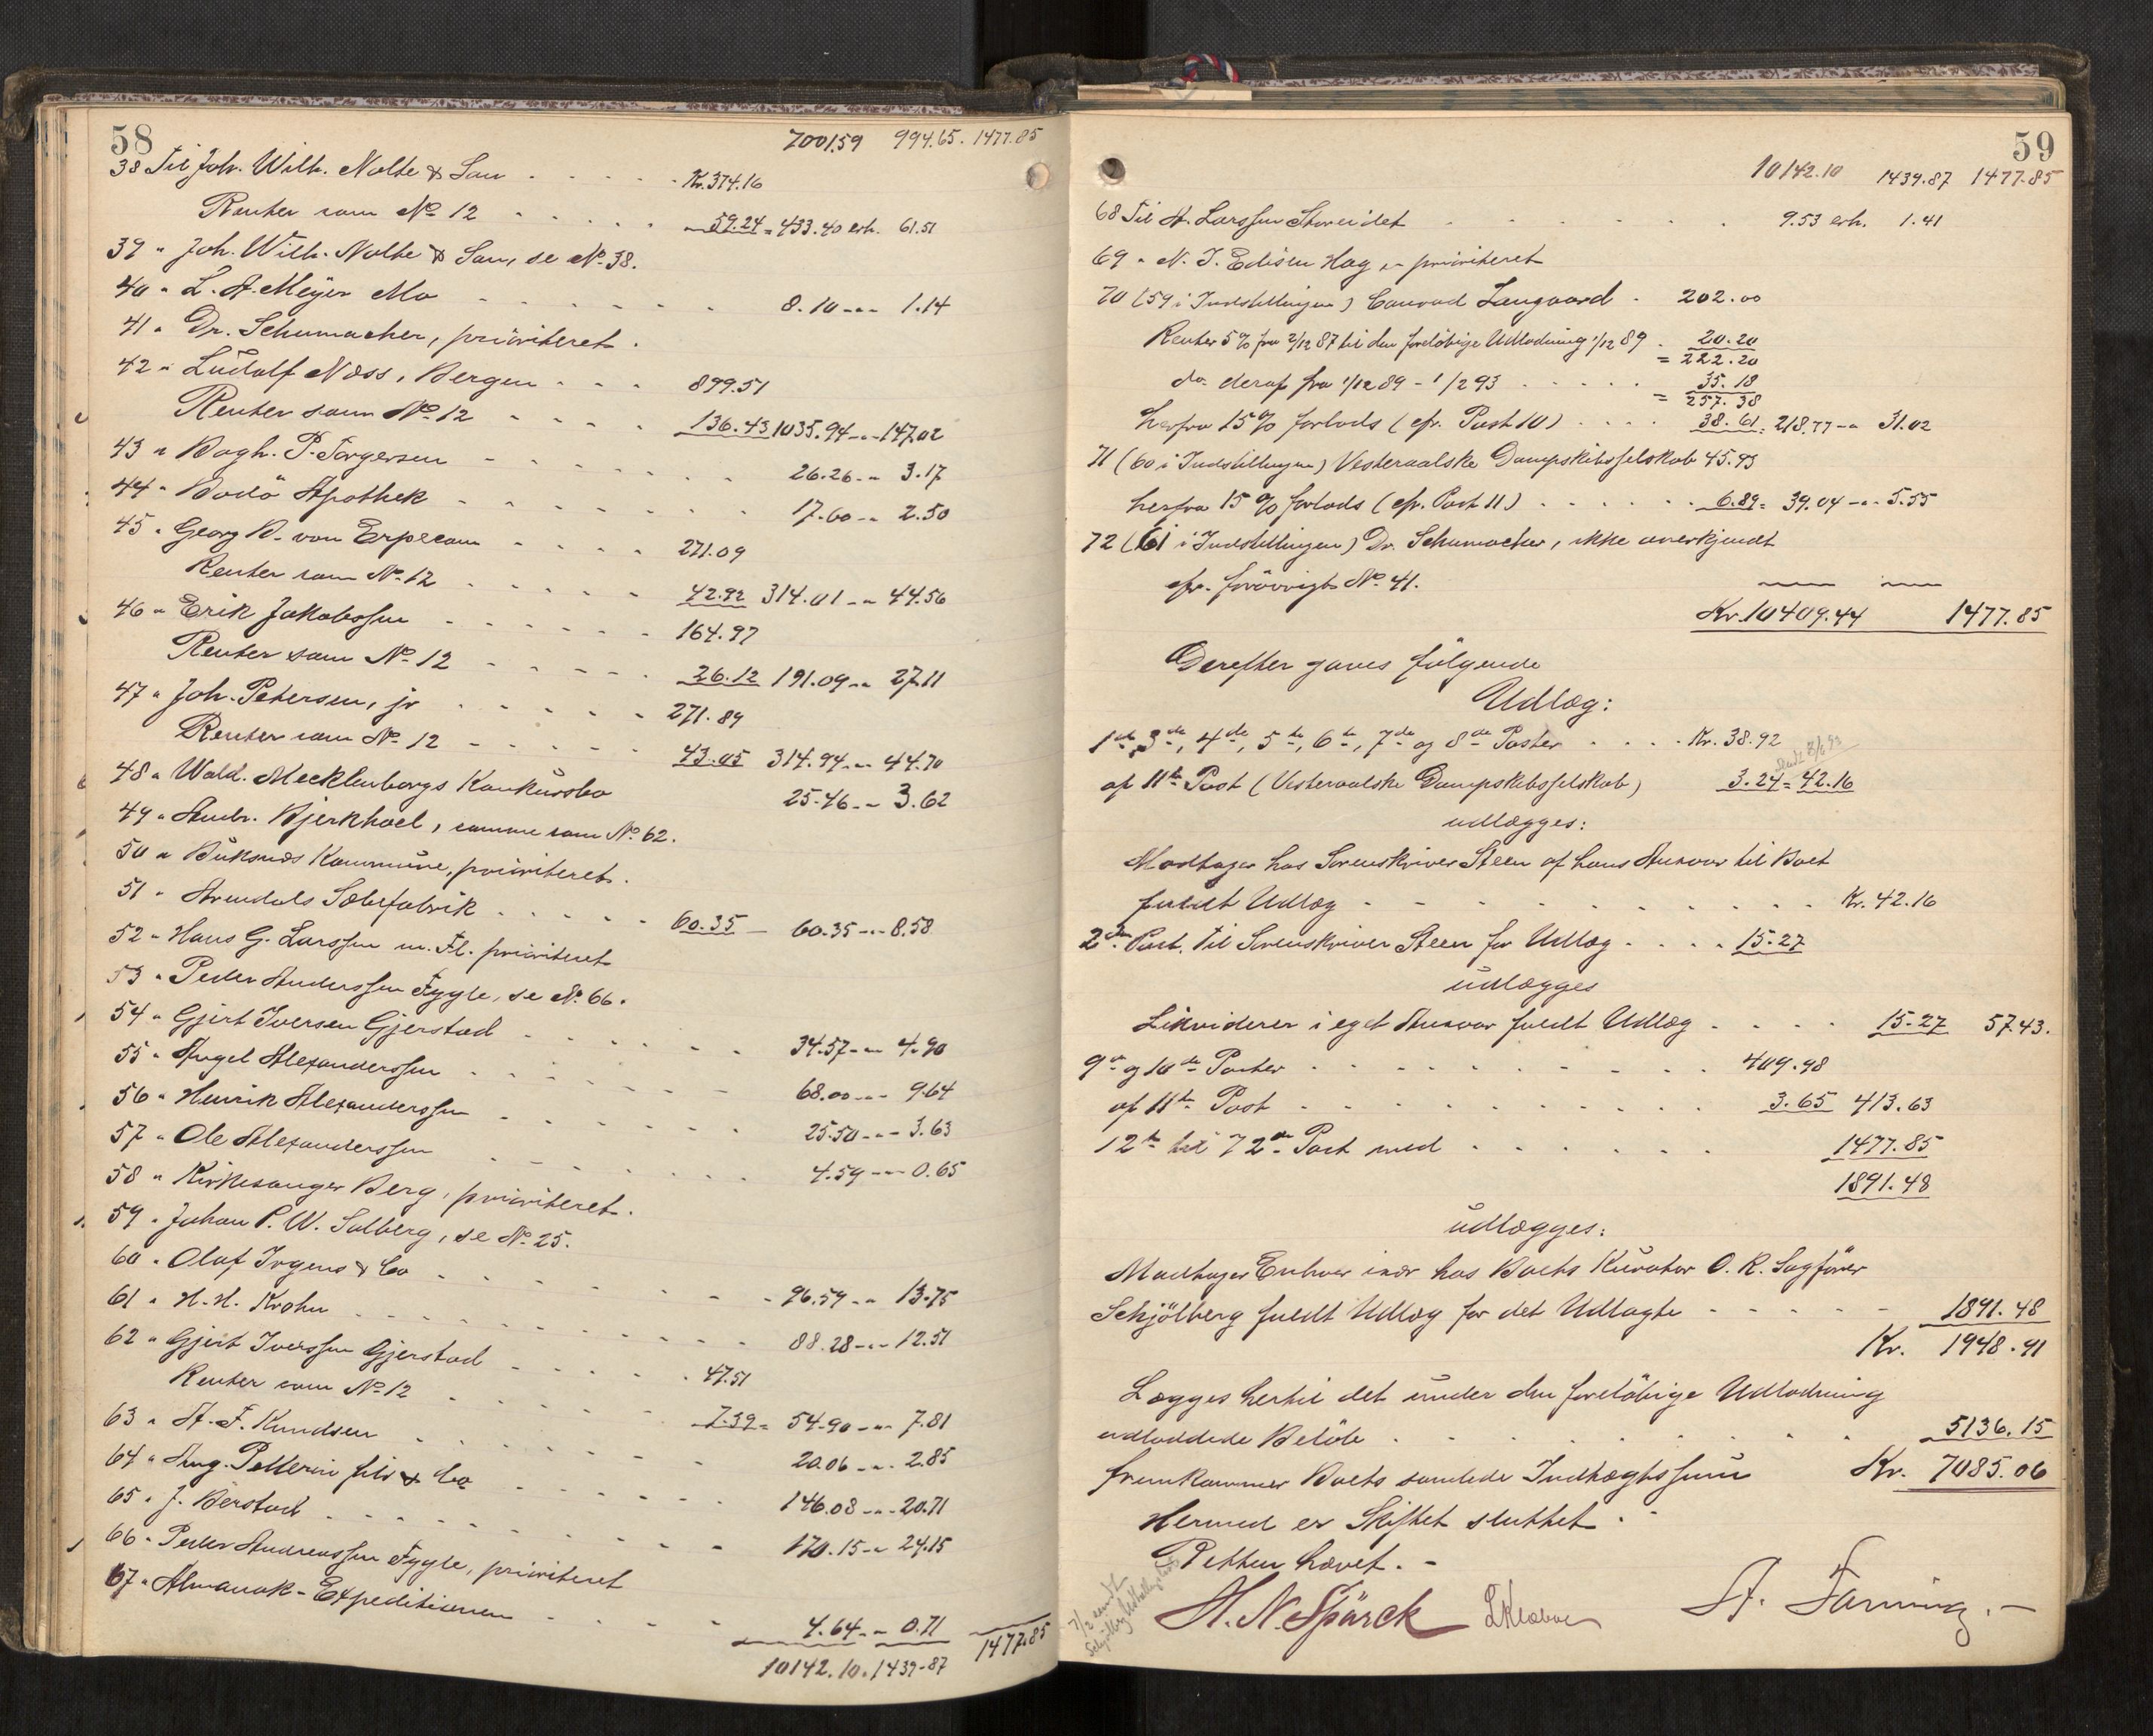 58
7001.59 994.65. 1477.85
38 Til Joh. Wilh. Nolte & Son . . . . . Kr. 374.16
Renter som No 12 . . . . . 59.24 = 433.40 erh. 61.51
39 " Joh. Wilh. Nolte & Son, se No 38.
40 " L. A. Meyer Mo . . . . . 8.10 - " - 1.14
41 " Dr. Schumacher, prioriteret.
42 " Ludolf Næss, Bergen . . . 899.51
Renter som No 12 . . . . 136.43 1035.94 - " - 147.02
43 " Bagh. P. Torgersen . . . . . 26.26 - " 3.17
44 " Bodö Apothek . . . . . 17.60 - " 2.50
45 " Georg B. von Erpecom . . . . 271.09
Renter som No 12 . . . . 42.92 314.01 - " 44.56
46 " Erik Jakobssen . . . . . 164.97
Renter som No 12 . . . . 26.12 191.09 - " 27.11
47 " Joh. Petersen, jr . . . . . 271.89
Renter som No 12 . . . . 43.05 314.94 - " 44.70
48 " Wald. Mecklenborgs Konkursbo 25.46 - " 3.62
49 " Andr. Bjerkhoel, samme som No 62.
50 " Buksnæs Kommune, prioriteret.
51 " Arendals Sæbefabrik . . . . . 60.35 — 60.35 - " - 8.58
52 " Hans G. Larssen m. Fl. prioriteret
53 " Peder Anderssen Fygle, se No 66.
54 " Gjert Iversen Gjerstad . . . . . 34.57 - " 4.90
55 " Angel Alexanderssen . . . . . 68.00 - " - 9.64
56 " Henrik Alexanderssen . . . . . 25.50 - " - 3.63
57 " Ole Alexanderssen . . . . . 4.59 - " - 0.65
58 " Kirkesanger Berg, prioriteret.
59 " Johan P. W. Solberg, se No 25.
60 " Olaf Irgens & Co . . . . . 96.59 - " 13.75
61 " H. H. Krohn . . . . . 88.28 - " - 12.51
62 " Gjert Iverssen Gjerstad . . . . 47.51
Renter som No 12 . . . . 7.39 = 54.90 - " - 7.81
63 " A. F. Knudsen . . . . . 20.06 - " - 2.85
64 " Aug. Pellerin fils & Co . . . . . 146.08 - " - 20.71
65 " J. Berstad . . . . . 170.15 - " 24.15
66 " Peder Andreassen Fygle, prioriteret
67 " Almanak-Expeditionen . . . . . 4.64 - " 0.71
10142.10. 1439.87 1477.85
59
10142.10 1439.87 1477.85
68 Til A. Larssen Storeidet . . . . . 9.53 erh. 1.41
69 " N. J. Edisen Hag " prioriteret
70 (59 i Indstillingen) Conrad Langaard . 202.00
Renter 5% fra 2/12 87 til den foreløbige Udlodning 1/12 89 . 20.20
= 222.20
do. deraf fra 1/12 89 - 1/2 93 . . . . . 35.18
= 257.38
herfra 15% forlods (cfr. Post 10) . . . . 38.61 = 218.77 - " 31.02
71 (60 i Indstillingen) Vesteraalske Dampskibsselskab 45.93
herfra 15% forlods (cfr. Post 11) . . . . . 6.89 = 39.04 - " - 5.55
72 (61 i Indstillingen) Dr. Schumacher, ikke anerkjendt
cfr. forövrigt No 41.
Kr. 10409.44 1477.85
Derefter gaves følgende
Udlæg:
1ste, 3de, 4de, 5te, 6te, 7de og 8de Poster . . . . Kr. 38.92
af 11te Post (Vesteraalske Dampskibsselskab) 3.24 = 42.16
udlægges:
Modtager hos Sorenskriver Steen af hans Ansvar til Boet
fuldt Udlæg . . . . . Kr. 42.16
2den Post. Til Sorenskriver Steen for Udlæg . . . . 15.27
udlægges
Likviderer i eget Ansvar fuldt Udlæg . . . . 15.27 57.43.
9de og 10de Poster . . . . . 409.98
af 11te Post . . . . . 3.65 413.63
12te til 72de Post med . . . . . 1477.85
1891.48
udlægges:
Modtager Enhver især hos Boets Kurator O. R. Sagfører
Schjölberg fuldt Udlæg for det Udlagte . . . . . 1891.48
Kr. 1948.91
Lægges hertil det under den foreløbige Udlodning
udloddede Beløb . . . . . 5136.15
fremkommer Boets samlede Indtægtssum Kr. 7085.06
Hermed er Skiftet sluttet.
Retten hævet. -
7/2 sendt
H. N. Spärck A. Farming. —